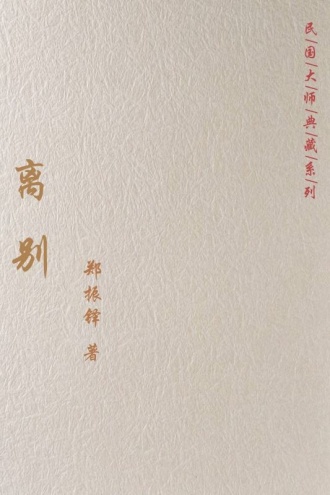 民|国|大|师|典|藏|系|列
离别
郑振铎 著